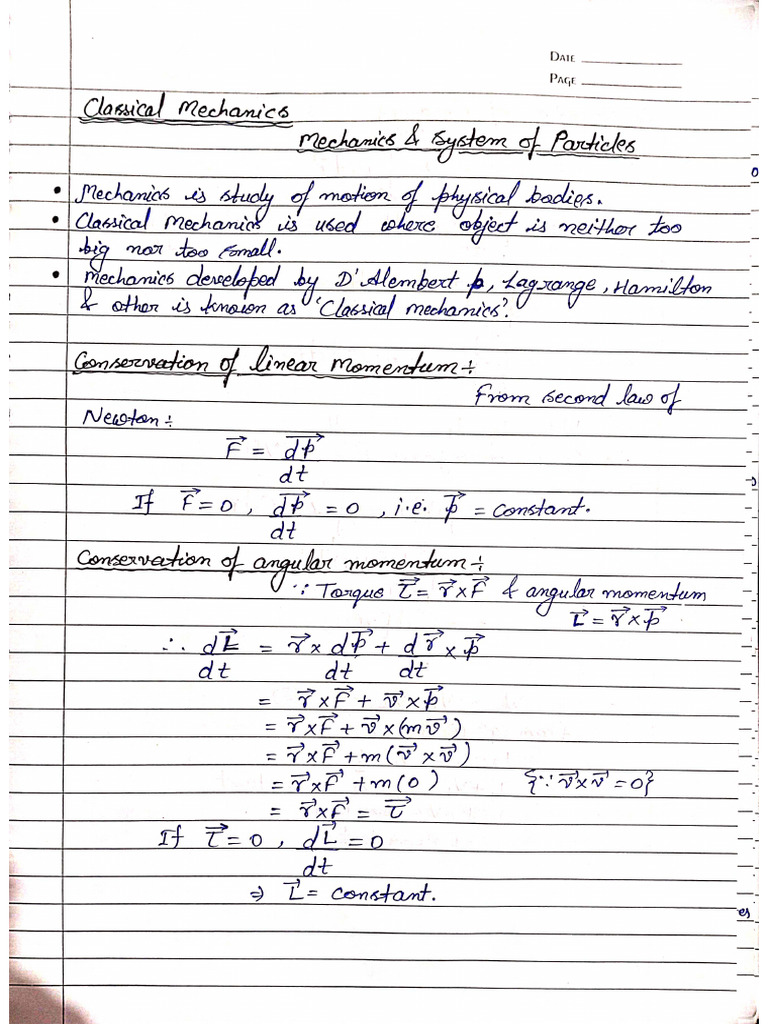 DATE
PAGE
Classical Mechanics
Mechanics & System of Particles
• Mechanics is study of motion of physical bodies.
• Classical Mechanics is used where object is neither too
big nor too small.
• Mechanics developed by D'Alembert, Lagrange, Hamilton
& other is known as 'Classical mechanics'.
Conservation of linear momentum ÷
From second law of
Newton ÷
F⃗ = dp⃗/dt
If F⃗ = 0, dp⃗/dt = 0, i.e. p⃗ = constant.
Conservation of angular momentum ÷
∵ Torque τ⃗ = r⃗ × F⃗ & angular momentum
L⃗ = r⃗ × p⃗
∴ dL⃗/dt = r⃗ × dp⃗/dt + dr⃗/dt × p⃗
= r⃗ × F⃗ + v⃗ × p⃗
= r⃗ × F⃗ + v⃗ × (mv⃗)
= r⃗ × F⃗ + m(v⃗ × v⃗)
= r⃗ × F⃗ + m(0) {∵ v⃗ × v⃗ = 0}
= r⃗ × F⃗ = τ⃗
If τ⃗ = 0, dL⃗/dt = 0
⇒ L⃗ = constant.
es